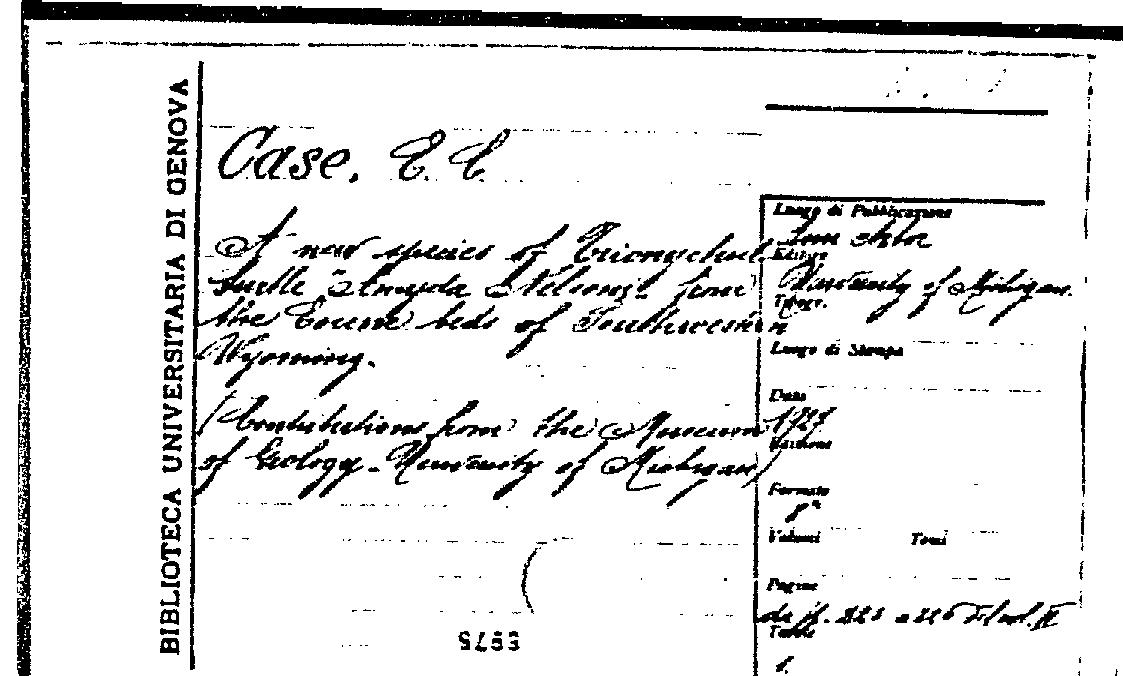 BIBLIOTECA UNIVERSITARIA DI GENOVA
Case. E. C
A new species of Trionychid
turtle "Amyda Nelsoni" from
the Eocene beds of Southwestern
Wyoming.
(Contributions from the Museum
of Geology - University of Michigan)
Luogo di Pubblicazione
Ann Arbor
Editore
University of Michigan.
Tipogr.
Luogo di Stampa
Data
1925
Edizione
Formato
8°
Volumi Tomi
Pagine
da p. a del vol. II
Tavole
1.